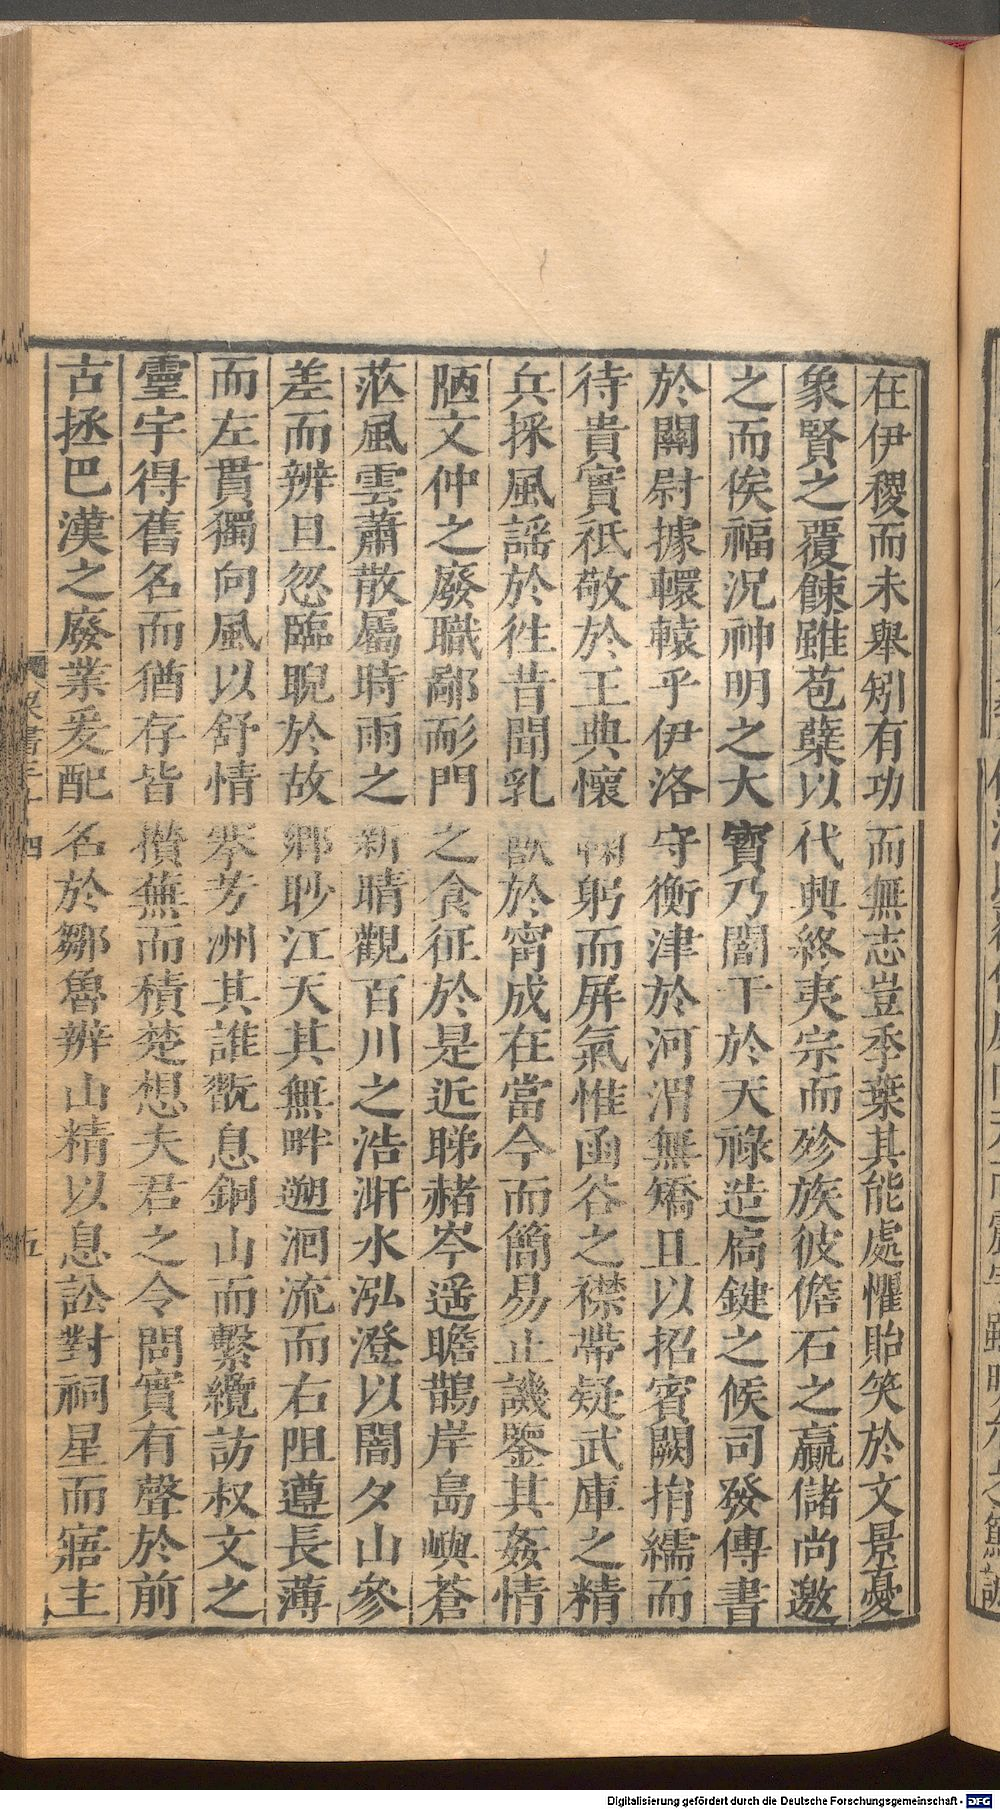 在伊稷而未舉矧有功而無志豈季葉其能處懼貽笑於文景憂
象賢之覆餗雖苞櫱以代興終夷宗而殄族彼儋石之贏儲尚邀
之而俟福況神明之大寶乃闇干於天祿造扃鍵之候司發傳書
於關尉據轘轅乎伊洛守衡津於河渭無矯且以招賓闕捐繻而
待貴實祗敬於王典懷鞠躬而屏氣惟函谷之襟帶疑武庫之精
兵採風謠於徃昔聞乳獸於甯成在當今而簡易止譏鑒其姦情
陋文仲之廢職鄙耏門之食征於是近睇赭岑遥瞻鵲岸島嶼蒼
茫風雲蕭散屬時雨之新晴觀百川之浩汗水泓澄以闇夕山參
差而辨旦忽臨睨於故鄉眇江天其無畔遡洄流而右阻遵長薄
而左貫獨向風以舒情搴芳洲其誰翫息銅山而繫纜訪叔文之
靈宇得舊名而猶存皆攢蕪而積楚想夫君之令問實有聲於前
古拯巴漢之廢業爰配名於鄒魯辨山精以息訟對祠星而寤主
五
Digitalisierung gefördert durch die Deutsche Forschungsgemeinschaft - DFG